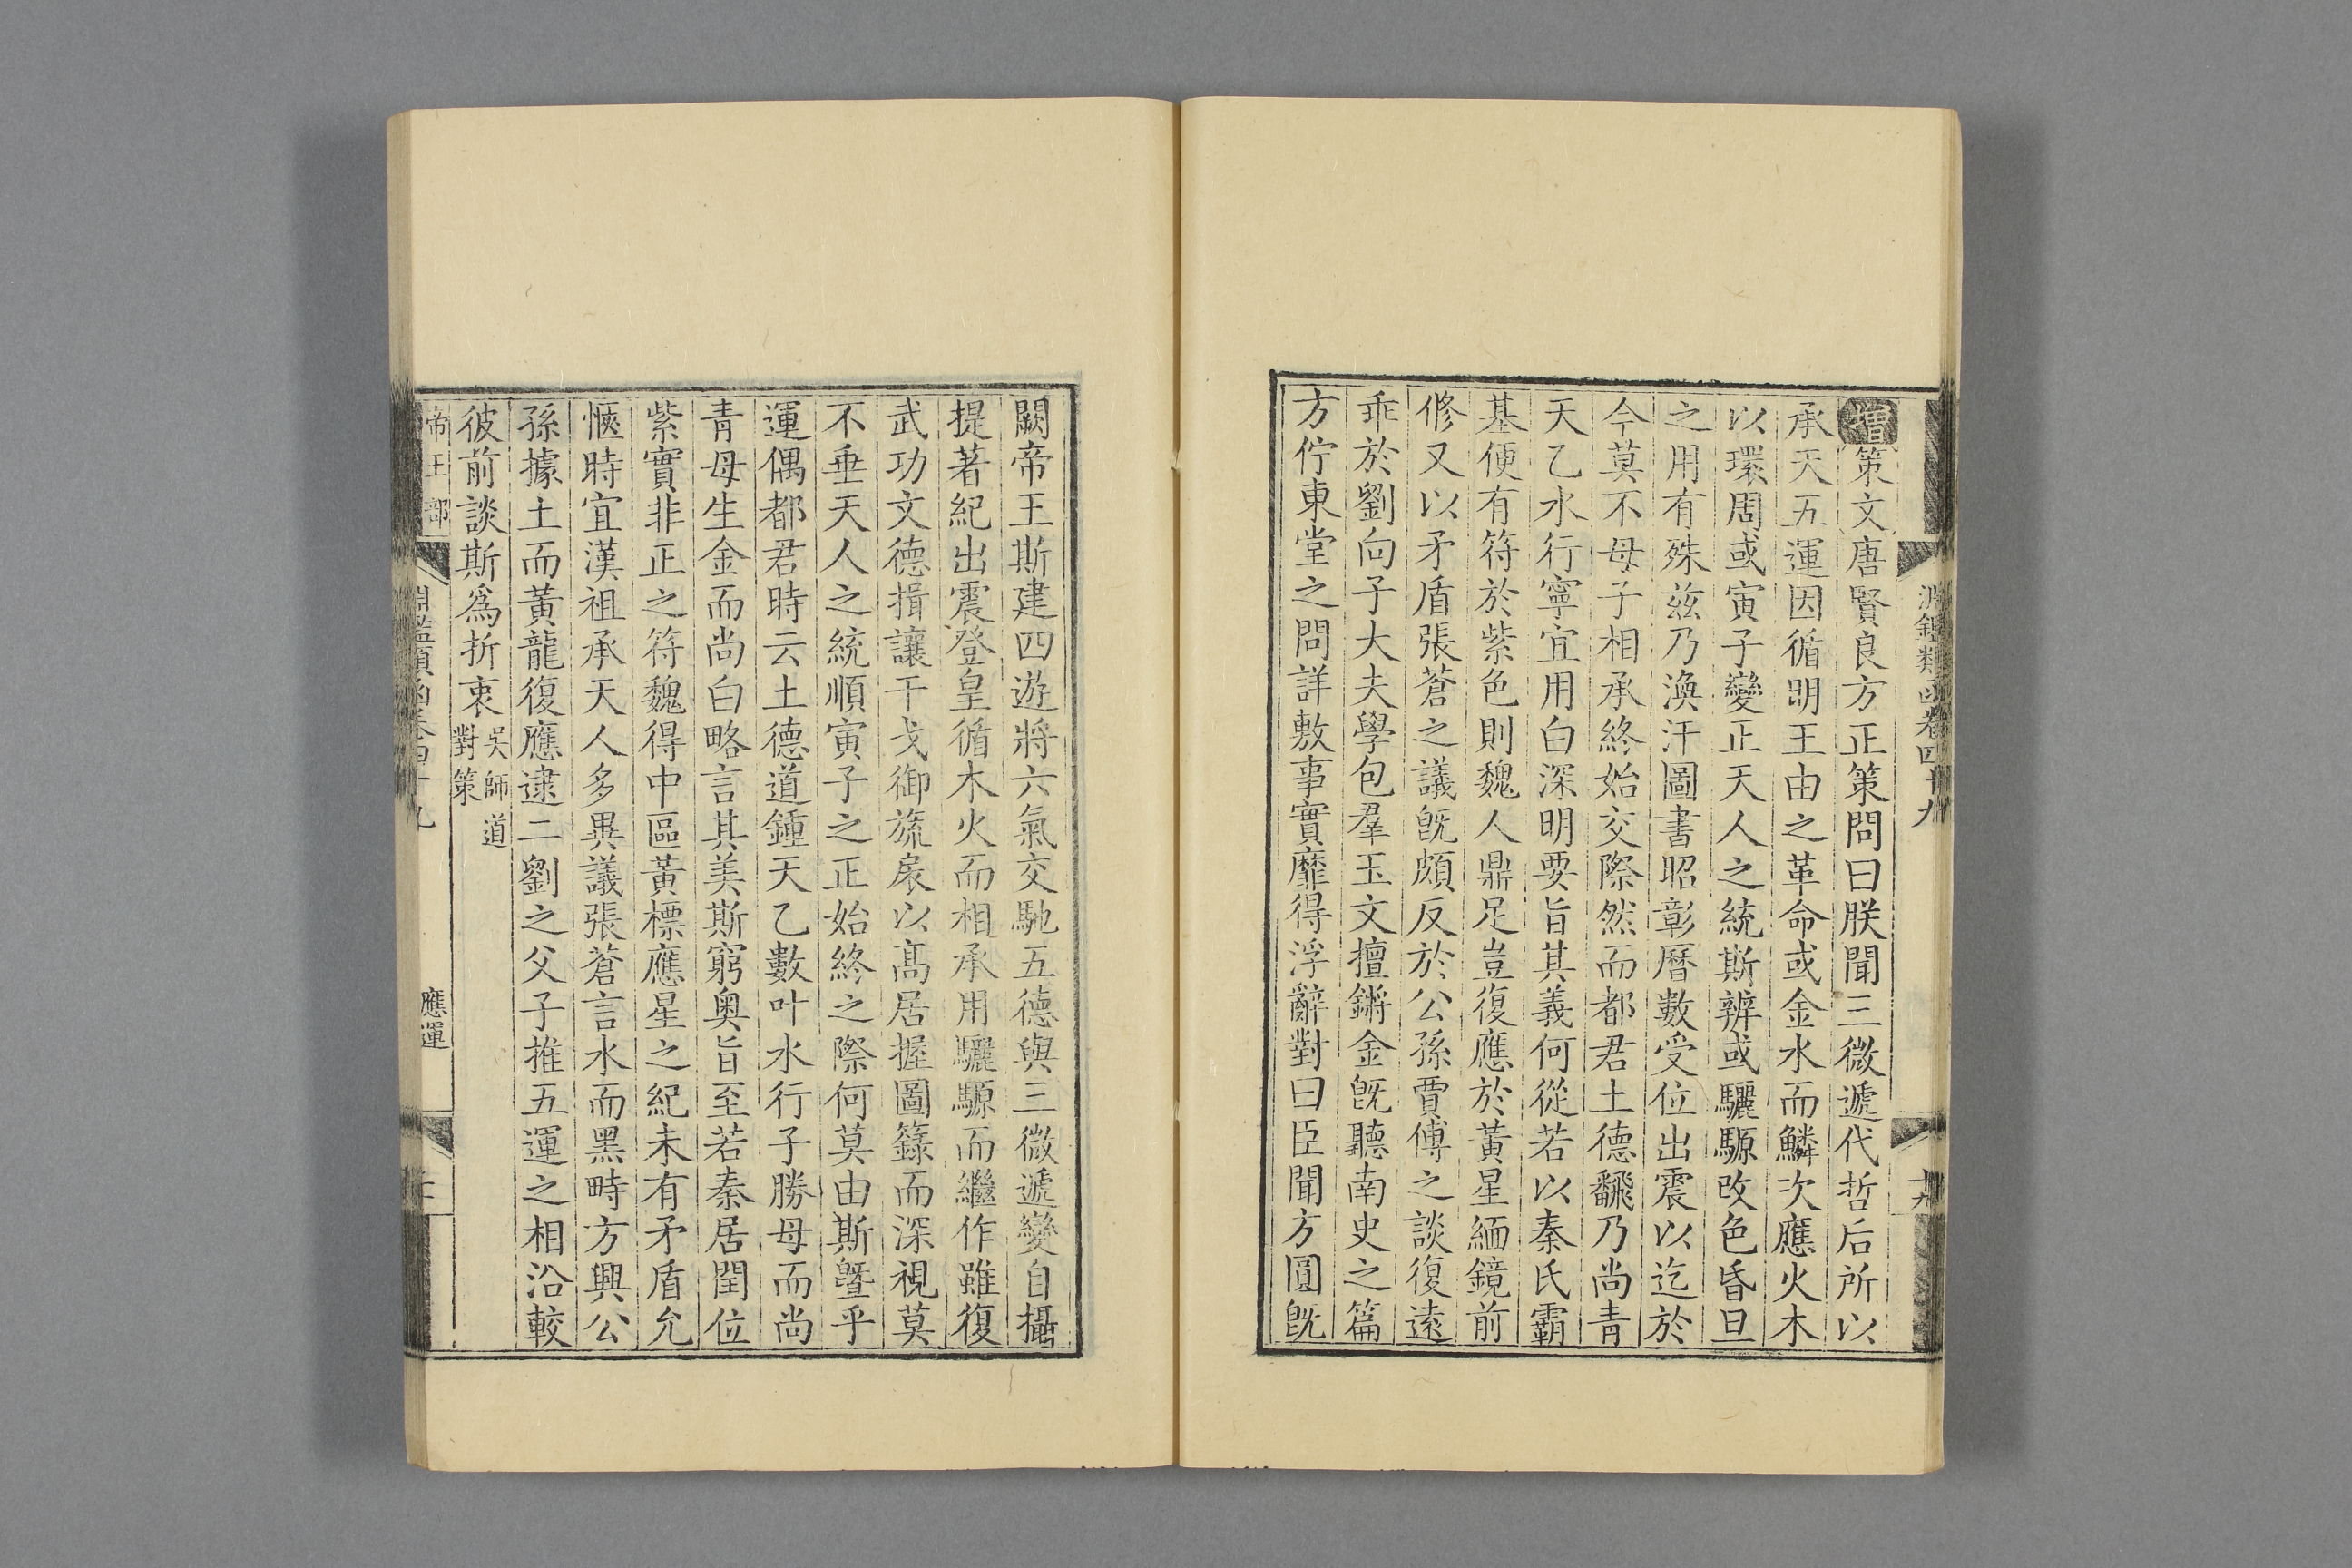 淵鑑類函卷四十九
增策文唐賢良方正策問曰朕聞三微遞代哲后所以
承天五運因循明王由之革命或金水而鱗次應火木
以環周或寅子變正天人之統斯辨或驪騵改色昏旦
之用有殊茲乃渙汗圖書昭彰曆數受位出震以迄於
今莫不母子相承終始交際然而都君土德飜乃尚青
天乙水行寧宜用白深明要旨其義何從若以秦氏霸
基便有符於紫色則魏人鼎足豈復應於黃星緬鏡前
修又以矛盾張蒼之議旣頗反於公孫賈傅之談復遠
乖於劉向子大夫學包羣玉文擅鏘金旣聽南史之篇
方佇東堂之問詳敷事實靡得浮辭對曰臣聞方圓旣
闢帝王斯建四遊將六氣交馳五德與三微遞變自攝
提著紀出震登皇循木火而相承用驪騵而繼作雖復
武功文德揖讓干戈御旒扆以高居握圖籙而深視莫
不垂天人之統順寅子之正始終之際何莫由斯曁乎
運偶都君時云土德道鍾天乙數叶水行子勝母而尚
青母生金而尚白略言其美斯窮奧旨至若秦居閏位
紫實非正之符魏得中區黃標應星之紀未有矛盾允
愜時宜漢祖承天人多異議張蒼言水而黑畤方興公
孫據土而黃龍復應逮二劉之父子推五運之相沿較
彼前談斯爲折衷吳師道
對策
帝王部
淵鑑類函卷四十九
應運